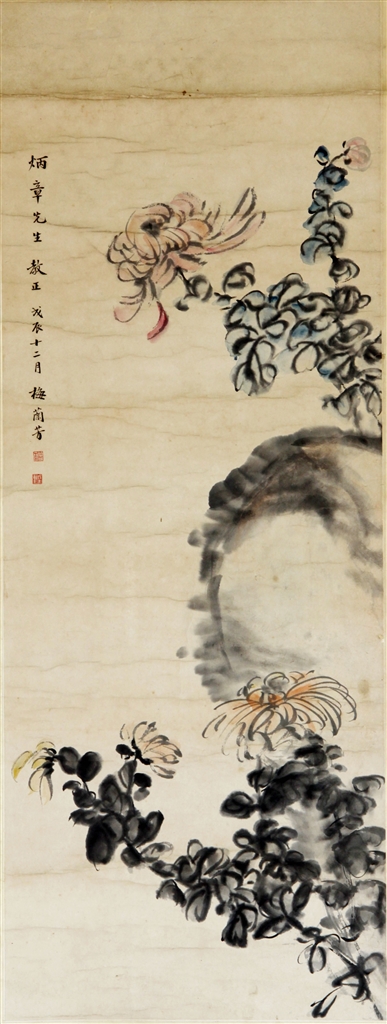 炳章先生教正戊辰十二月梅蘭芳